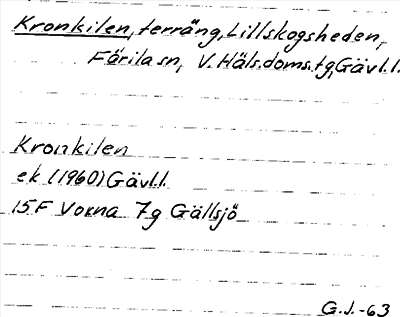 Kronkilen, terräng, Lillskogsheden,
Färila sn, V. Häls.doms.tg, Gävl.l.
Kronkilen
ek (1960) Gävl.l.
15F Voxna 7g Gällsjö
G.J.-63